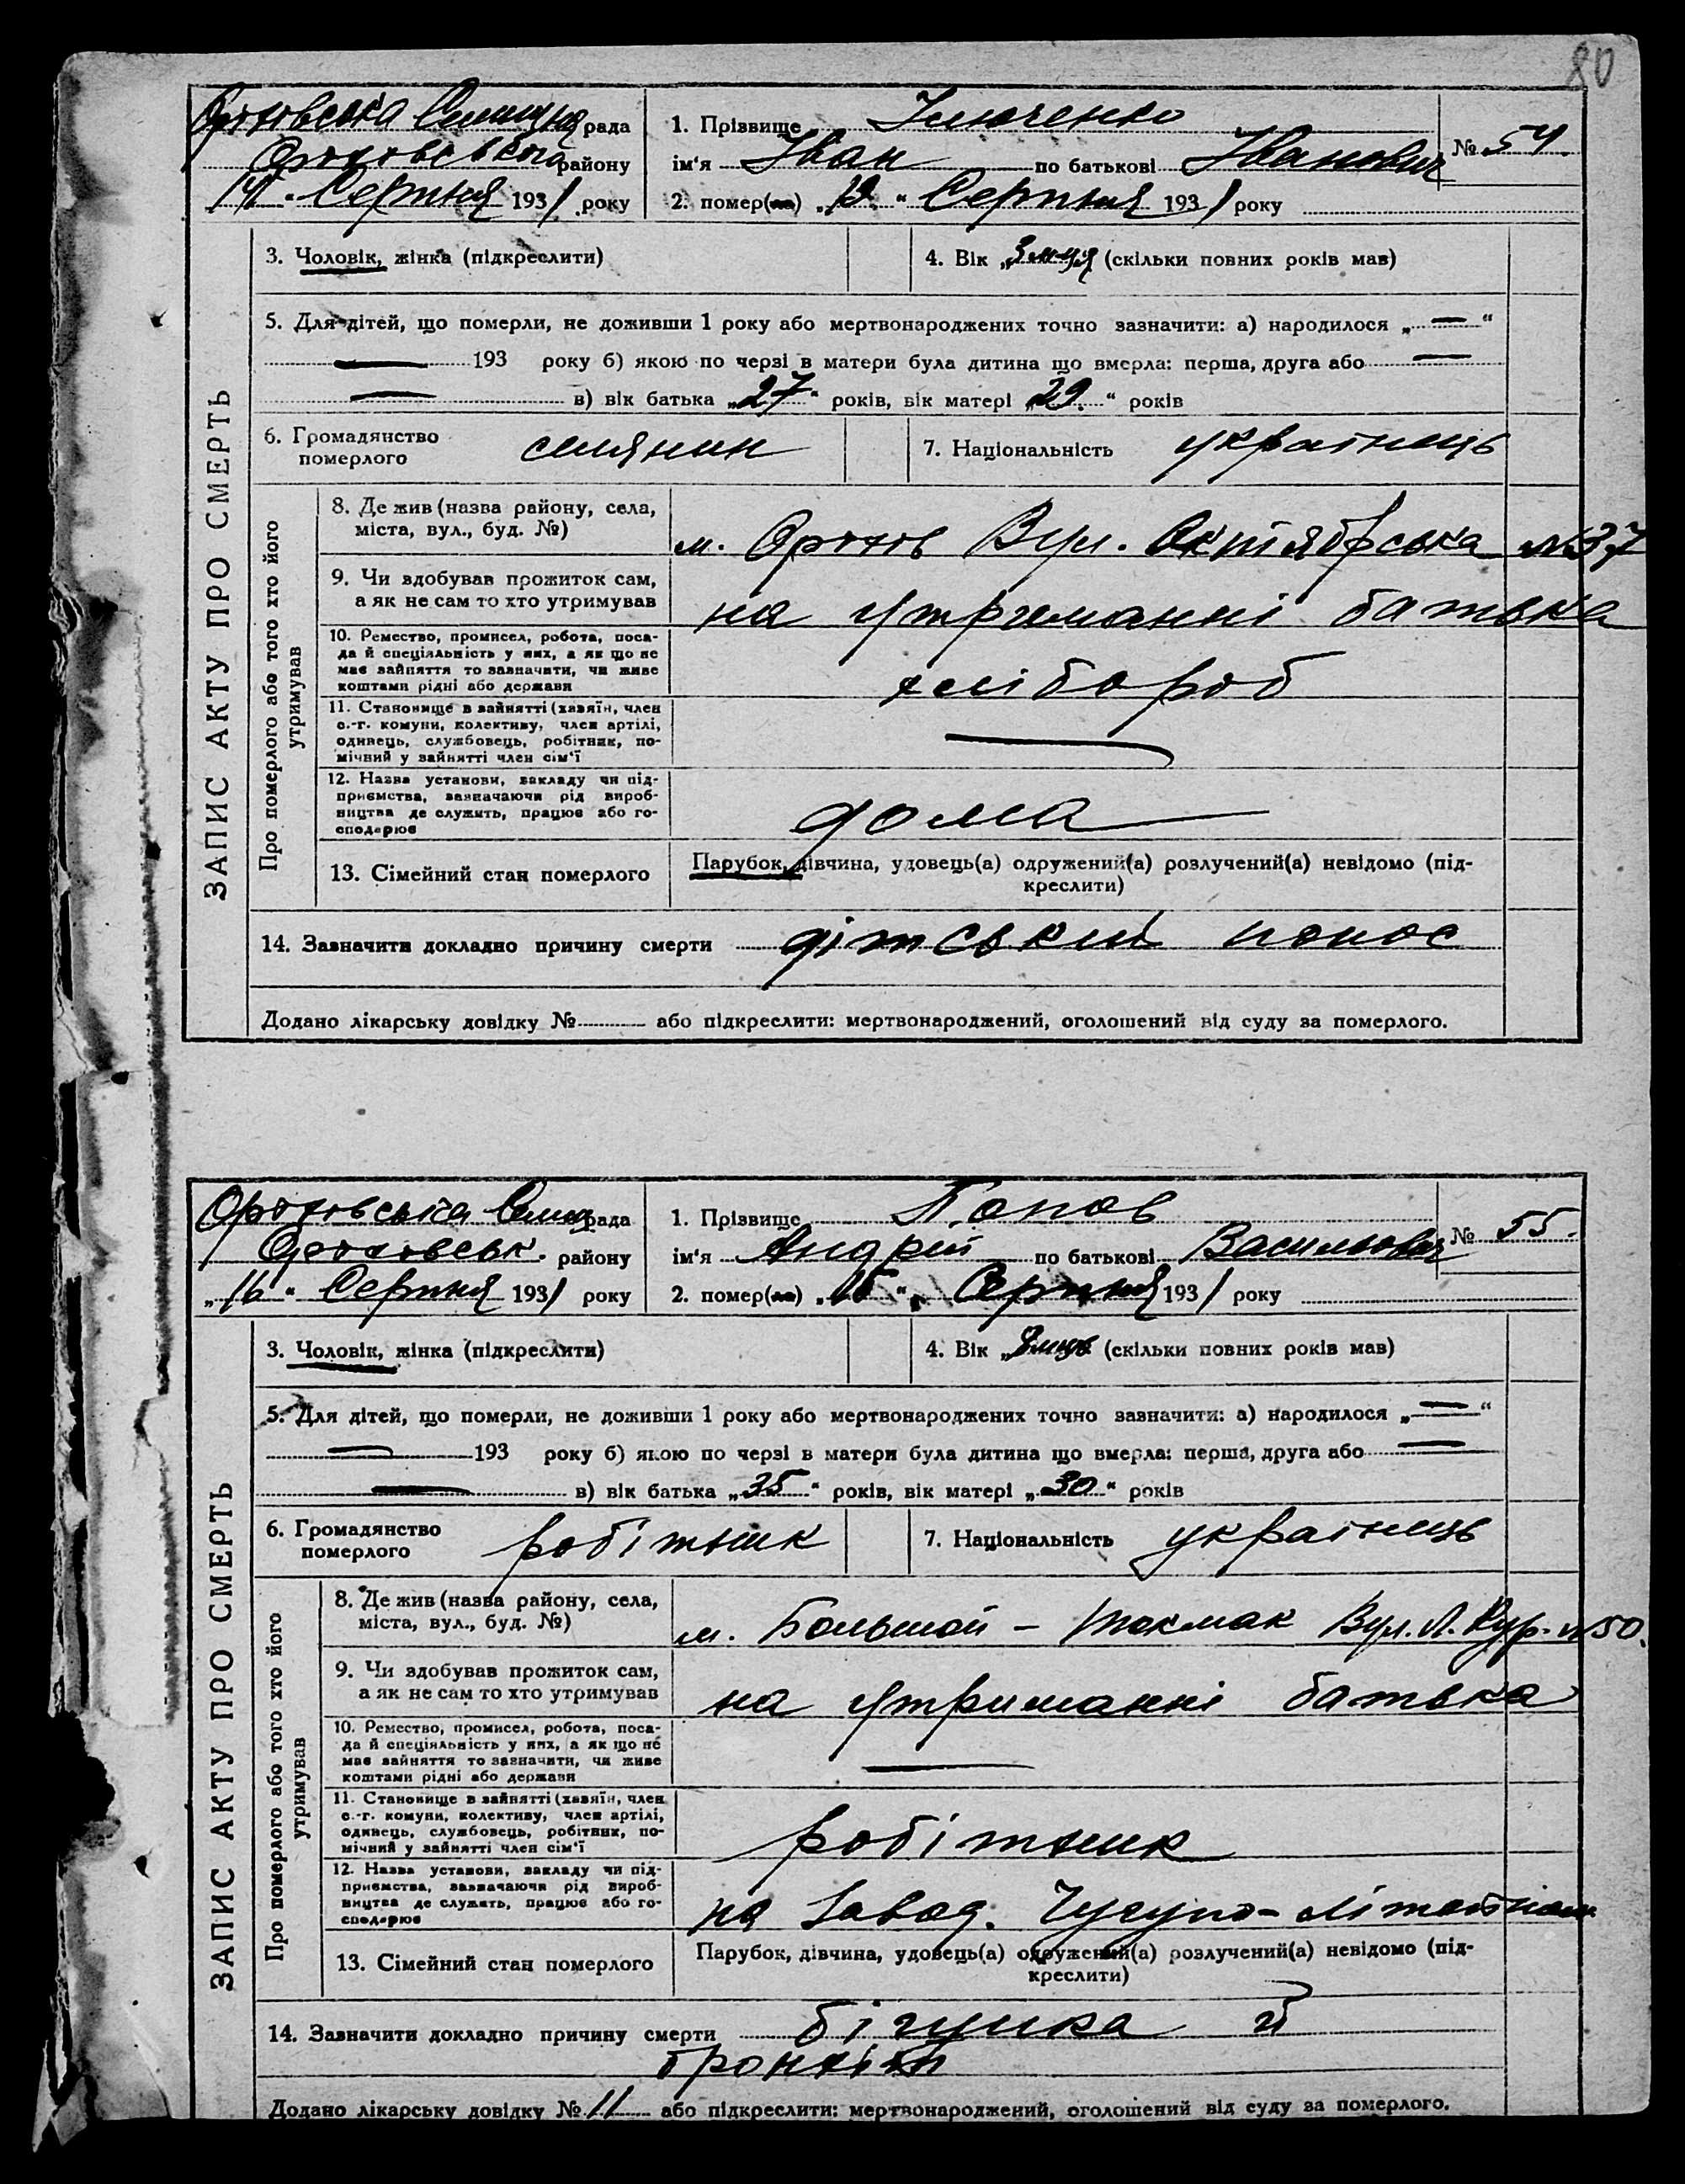 80
Оріховська Селищна рада
Оріховського району
"14" Серпня 1931 року
1. Прізвище
ім'я Іван по батькові Іванович
№ 54.
2. помер(ла) " " Серпня 1931 року
ЗАПИС АКТУ ПРО СМЕРТЬ
3. Чоловік, жінка (підкреслити)
4. Вік „3 м-ця (скільки повних років мав)
5. Для дітей, що померли, не доживши 1 року або мертвонароджених точно зазначити: а) народилося „—“
— 193 року б) якою по черзі в матери була дитина що вмерла: перша, друга або —
— в) вік батька „27“ років, вік матері „29.“ років
6. Громадянство
померлого
селянин
7. Національність українець
Про померлого або того хто його
утримував
8. Де жив (назва району, села,
міста, вул., буд. №)
м. Оріхов Вул. Октябрська №37
9. Чи здобував прожиток сам,
а як не сам то хто утримував
на утриманні батька
10. Ремество, промисел, робота, поса-
да й спеціяльність у них, а як що не
має зайняття то зазначити, чи живе
коштами рідні або держави
хлібороб
11. Становище в зайнятті (хазяїн, член
с.-г. комуни, колективу, член артілі,
одинець, службовець, робітник, по-
мічний у зайнятті член сім'ї
—
12. Назва установи, закладу чи під-
приємства, зазначаючи рід вироб-
ництва де служить, працює або го-
сподарює
дома
13. Сімейний стан померлого
Парубок, дівчина, удовець(а) одружений(а) розлучений(а) невідомо (під-
креслити)
14. Зазначити докладно причину смерти дітський понос
Додано лікарську довідку № або підкреслити: мертвонароджений, оголошений від суду за померлого.
Оріховська Селищ рада
Оріховськ. району
„16“ Серпня 1931 року
1. Прізвище Попов
ім'я Андрій по батькові Васильович
№ 55.
2. помер(ла) „15“ Серпня 1931 року
ЗАПИС АКТУ ПРО СМЕРТЬ
3. Чоловік, жінка (підкреслити)
4. Вік „ (скільки повних років мав)
5. Для дітей, що померли, не доживши 1 року або мертвонароджених точно зазначити: а) народилося „—“
— 193 року б) якою по черзі в матери була дитина що вмерла: перша, друга або —
— в) вік батька „35“ років, вік матері „30“ років
6. Громадянство
померлого
робітник
7. Національність українець
Про померлого або того хто його
утримував
8. Де жив (назва району, села,
міста, вул., буд. №)
м. Большой – Токмак Вул. Л. Кур. №50.
9. Чи здобував прожиток сам,
а як не сам то хто утримував
на утриманні батька
10. Ремество, промисел, робота, поса-
да й спеціяльність у них, а як що не
має зайняття то зазначити, чи живе
коштами рідні або держави
—
11. Становище в зайнятті (хазяїн, член
с.-г. комуни, колективу, член артілі,
одинець, службовець, робітник, по-
мічний у зайнятті член сім'ї
робітник
12. Назва установи, закладу чи під-
приємства, зазначаючи рід вироб-
ництва де служить, працює або го-
сподарює
на завод. Чугуно-
13. Сімейний стан померлого
Парубок, дівчина, удовець(а) одружений(а) розлучений(а) невідомо (під-
креслити)
14. Зазначити докладно причину смерти бігунка й
бронхіт
Додано лікарську довідку № 11 або підкреслити: мертвонароджений, оголошений від суду за померлого.